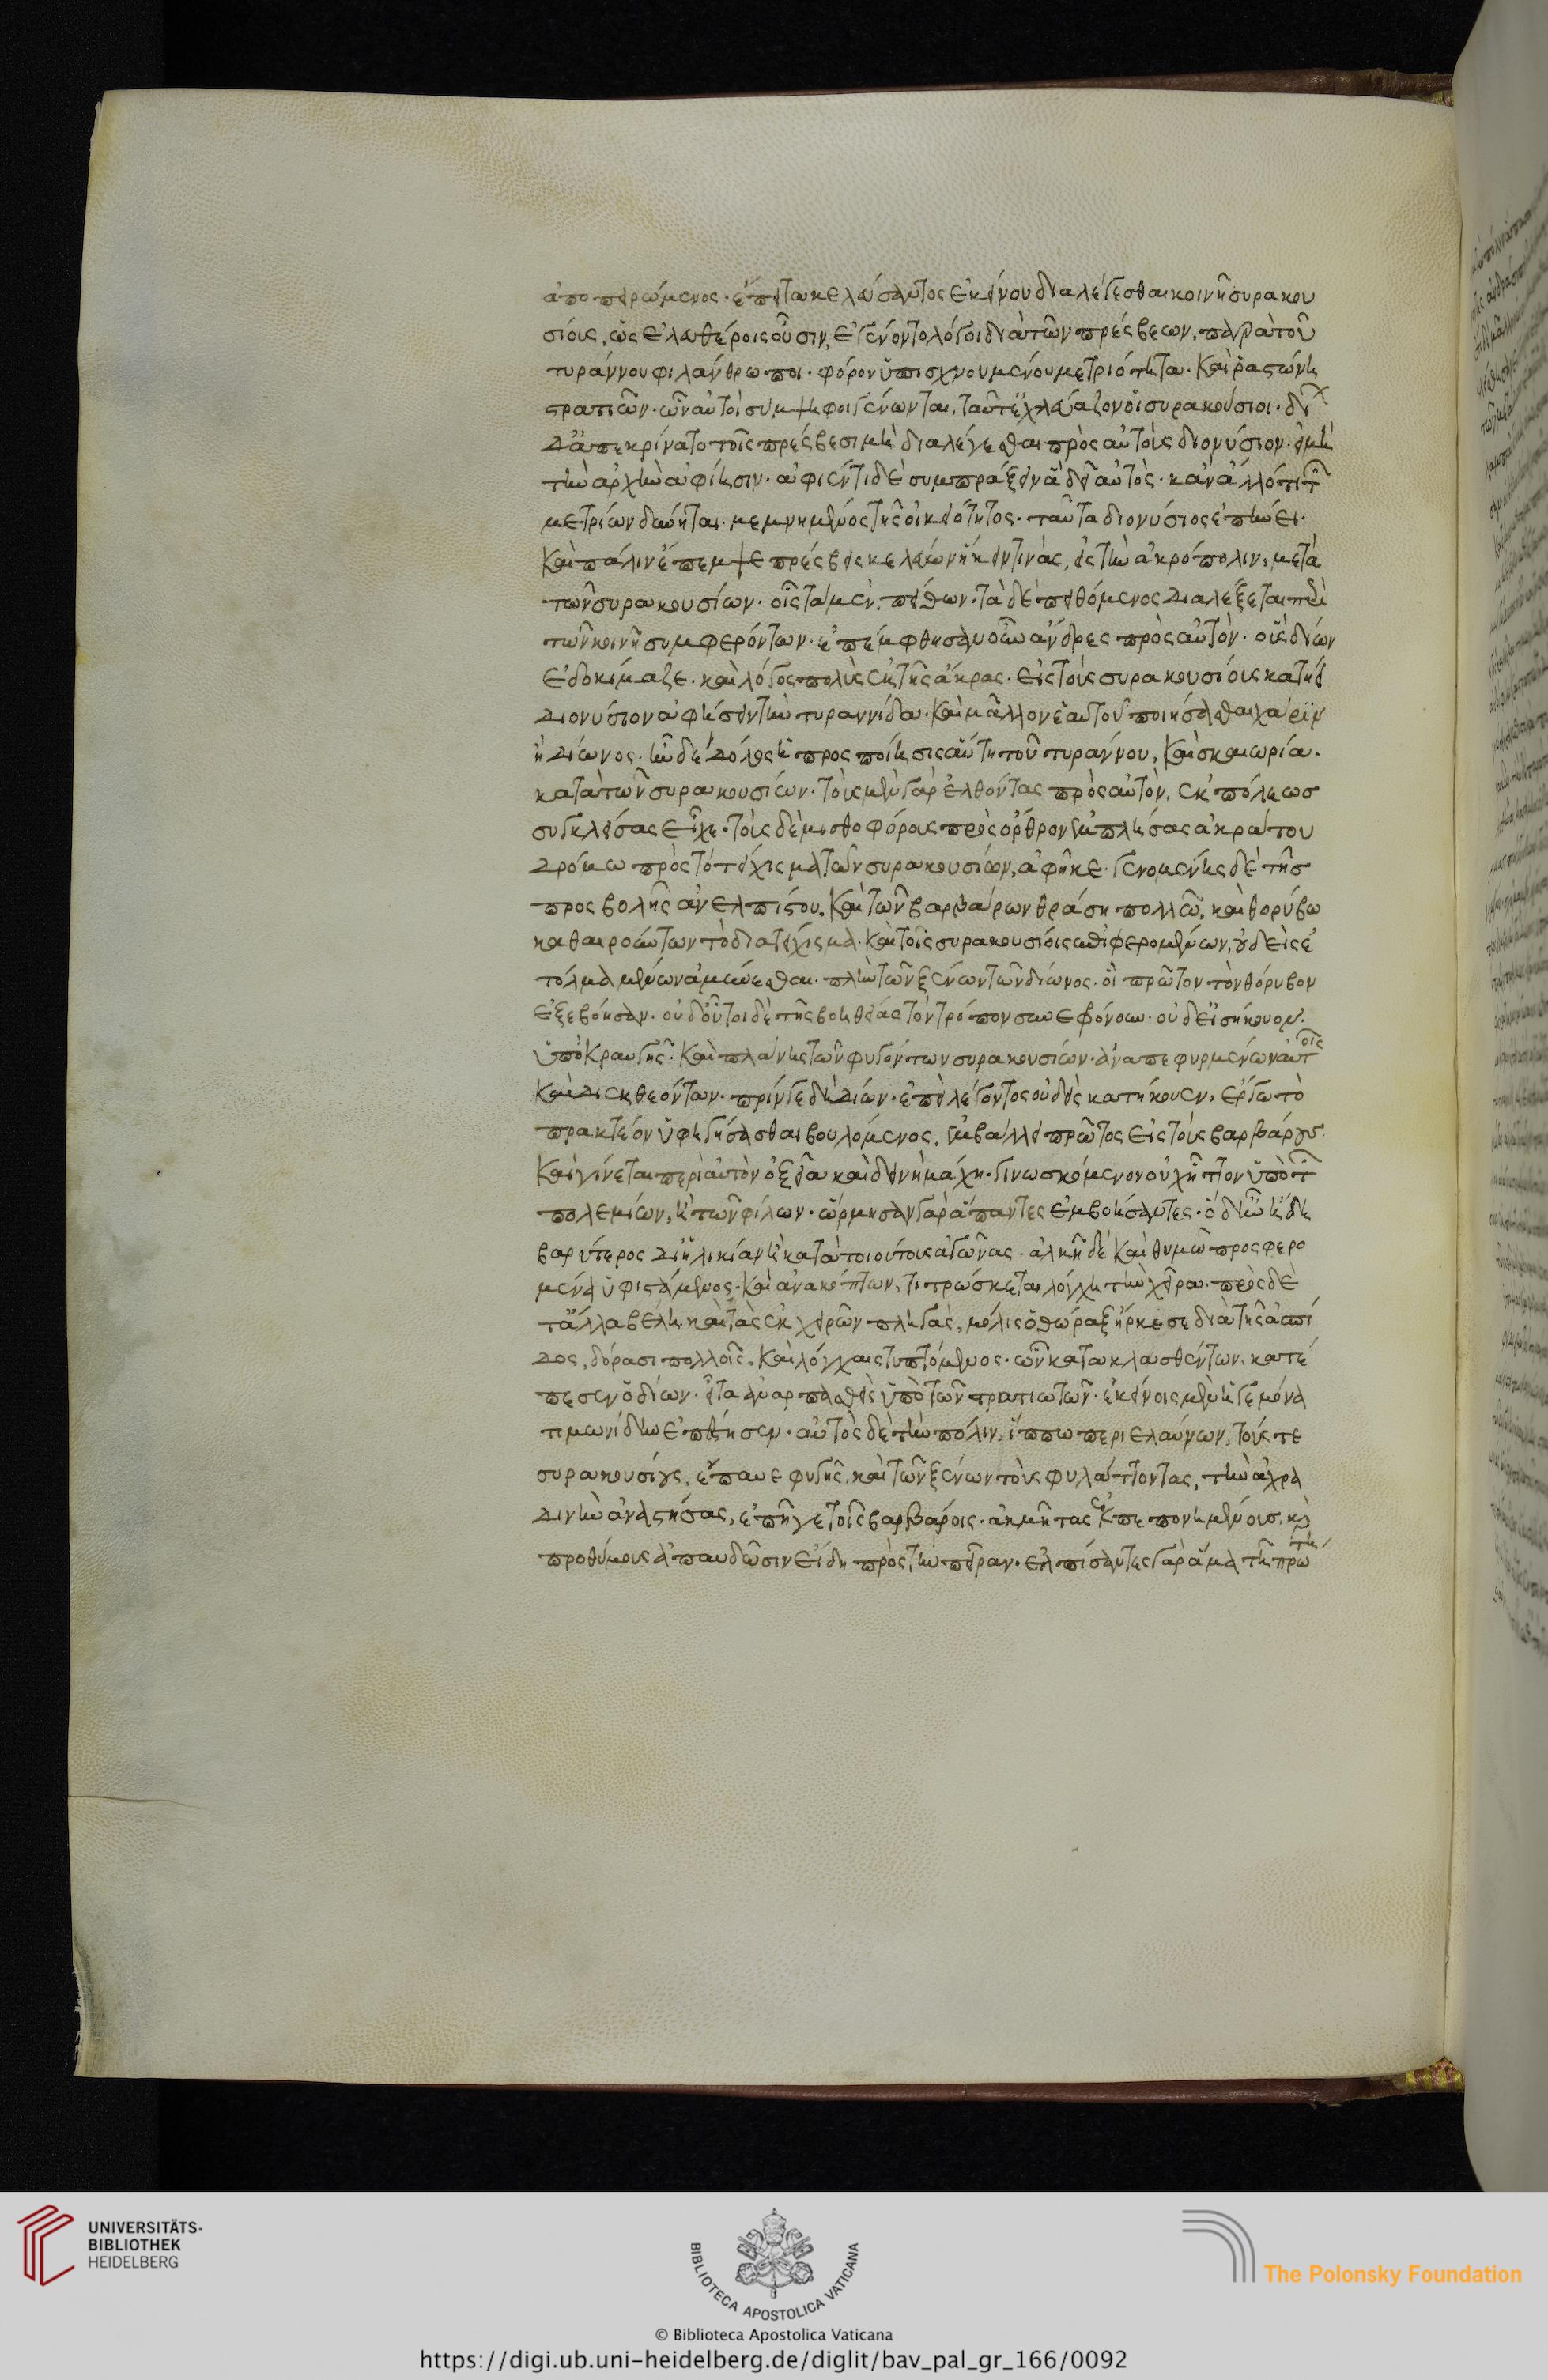 ἀποπειρώμενος· ἔπειτα κελεύσαντος ἐκείνου διαλέγεσθαι κοινῆ συρακου
σίοις, ὡς ἐλευθέροις οὖσιν, ἐγένοντο λόγοι διὰ τῶν πρέσβεων, παρὰ τοῦ
τυράννου φιλάνθρωποι· φόρων ὑπισχνουμένου μετριότητα· καὶ ῥαστώνη
στρατιῶν· ὧν αὐτοὶ σύμψηφοι γένωνται, ταῦτ' ἐχλεύαζον οἱ συρακούσιοι· δί
δ' ἀπεκρίνατο τοῖς πρέσβεσι μὴ διαλέγεσθαι πρὸς αὐτοὺς διονύσιον· εἰ μὴ
τὴν ἀρχὴν ἀφίησιν· ἀφιέντι δὲ συμπράξειν ἄδειαν αὐτὸς· κἂν ἄλλό τι τῶν
μετρίων δύνηται· μεμνημένος τῆς οἰκειότητος· ταῦτα διονύσιος ἐπήνει·
καὶ πάλιν ἔπεμψε πρέσβεις κελεύων ἥκειν τινὰς, εἰς τὴν ἀκρόπολιν, μετὰ
τῶν συρακουσίων· οἷς τὰ μὲν, πείθων· τὰ δὲ πειθόμενος διαλέξεται περὶ
τῶν κοινῇ συμφερόντων· ἐπέμφθησαν οὖν ἄνδρες πρὸς αὐτὸν· οὓς δίων
ἐδοκίμαζε· καὶ λόγος πολὺς ἐκ τῆς ἄκρας· εἰς τοὺς συρακουσίους κατῄει
διονύσιον ἀφήσειν τὴν τυραννίδα· καὶ μᾶλλον ἑαυτοῦ ποιήσασθαι χάριν
ἢ δίωνος· ἦν δὲ δόλος ἡ προσποίησις αὕτη τοῦ τυράννου, καὶ σκαιωρία·
κατὰ τῶν συρακουσίων· τοὺς μὲν γὰρ ἐλθόντας πρὸς αὐτὸν, ἐκ πόλεως
συγκλείσας εἶχε· τοὺς δὲ μισθοφόρους πρὸς ὄρθρον ἐμπλήσας ἀκράτου
δρόμω πρὸς τὸ τείχισμα τῶν συρακουσίων, ἀφῆκε· γενομένης δὲ τῆς
προσβολῆς ἀνελπίστου, καὶ τῶν βαρβάρων θράσει πολλῶ, καὶ θορύβω
καθαιρούντων τὸ διατείχισμα· καὶ τοῖς συρακουσίοις ἐπιφερομένων, οὐδεὶς ἐ
τόλμα μένων ἀμύνεσθαι· πλὴν τῶν ξένων τῶν δίωνος· οἳ πρῶτον τὸν θόρυβον
ἐξεβόησαν· οὐδ' οὗτοι δὲ τῆς βοηθείας τὸν τρόπον συνεφρόνουν· οὐδ' εἰσήκουον·
ὑπὸ κραυγῆς· καὶ πλάνης τῶν φυγόντων συρακουσίων· ἀναπεφυρμένων αὐτοῖς
καὶ διεκθεόντων· πρίν γε δὴ δίων· ἐπεὶ λέγοντος οὐδεὶς κατήκουεν, ἔργω τὸ
πρακτέον ὑφηγήσασθαι βουλόμενος, ἐμβάλλει πρῶτος εἰς τοὺς βαρβάρους·
καὶ γίνεται περὶ αὐτὸν ὀξεῖα καὶ δεινὴ μάχη· γινωσκόμενον οὐχ ἧττον ὑπὸ τῶν
πολεμίων, ἢ τῶν φίλων· ὥρμησαν γὰρ ἅπαντες ἐμβοήσαντες· ὁ δ' ἦν ἤδη
βαρύτερος δι' ἡλικίαν ἢ κατὰ τοιούτους ἀγῶνας· ἀλκῆ δὲ καὶ θυμῶ προσφερο
μένους ὑφιστάμενος· καὶ ἀνακόπτων, τιτρώσκεται λόγχη τὴν χεῖρα· πρὸς δὲ
τἄλλα βέλη καὶ τὰς ἐκ χειρῶν πληγὰς, μόλις ὁ θώραξ ἤρκεσε διὰ τῆς ἀσπί
δος, δόρασι πολλοῖς, καὶ λόγχαις τυπτόμενος· ὧν κατακλασθέντων, κατέ
πεσεν ὁ δίων· εἶτα ἀναρπασθεὶς ὑπὸ τῶν στρατιωτῶν· ἐκείνοις μὲν ἡγεμόνα
τιμωνίδην ἐπέστησεν· αὐτὸς δὲ τὴν πόλιν, ἵππω περιελαύνων, τούς τε
συρακουσίους, ἔπαυε φυγῆς, καὶ τῶν ξένων τοὺς φυλάττοντας, τὴν ἀχρα
δινὴν ἀναστήσας, ἐπῆγε τοῖς βαρβάροις· ἀκμῆτας ἐκπεπονημένοις, καὶ
προθύμους ἀπαυδῶσιν εἴδη πρὸς τὴν πεῖραν· ἐλπίσαντες γὰρ ἅμα τῆ πρώτη
UNIVERSITÄTS-
BIBLIOTHEK
HEIDELBERG
BIBLIOTECA APOSTOLICA VATICANA
The Polonsky Foundation
© Biblioteca Apostolica Vaticana
https://digi.ub.uni-heidelberg.de/diglit/bav_pal_gr_166/0092